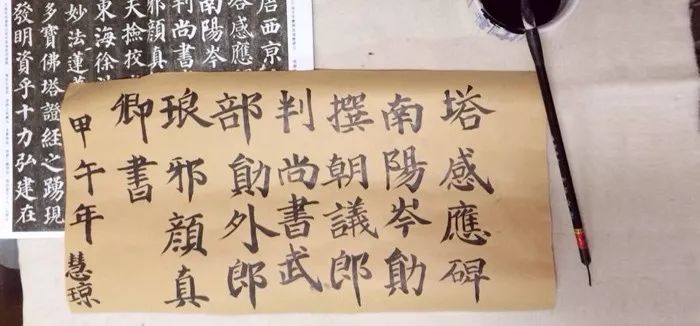 塔感應碑
南陽岑勛
撰朝議郎
判尚書武
部勛外郎
琅邪顏真
卿書
甲午年 慧琼
西京
塔感應
南陽岑
判尚書
邪顏真
天撿校
東海徐
妙法蓮
多寶佛塔證經之踴現
發明資乎十力弘建在